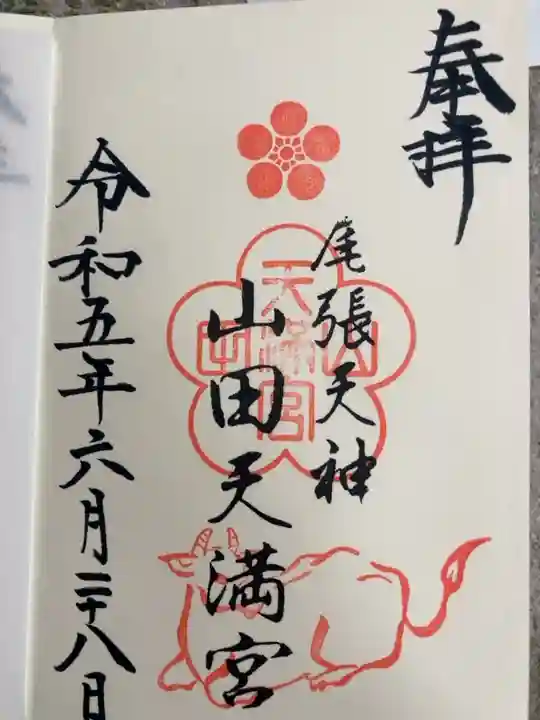 奉拝
尾張天神
山田天満宮
令和五年六月二十八日
山田
天満宮